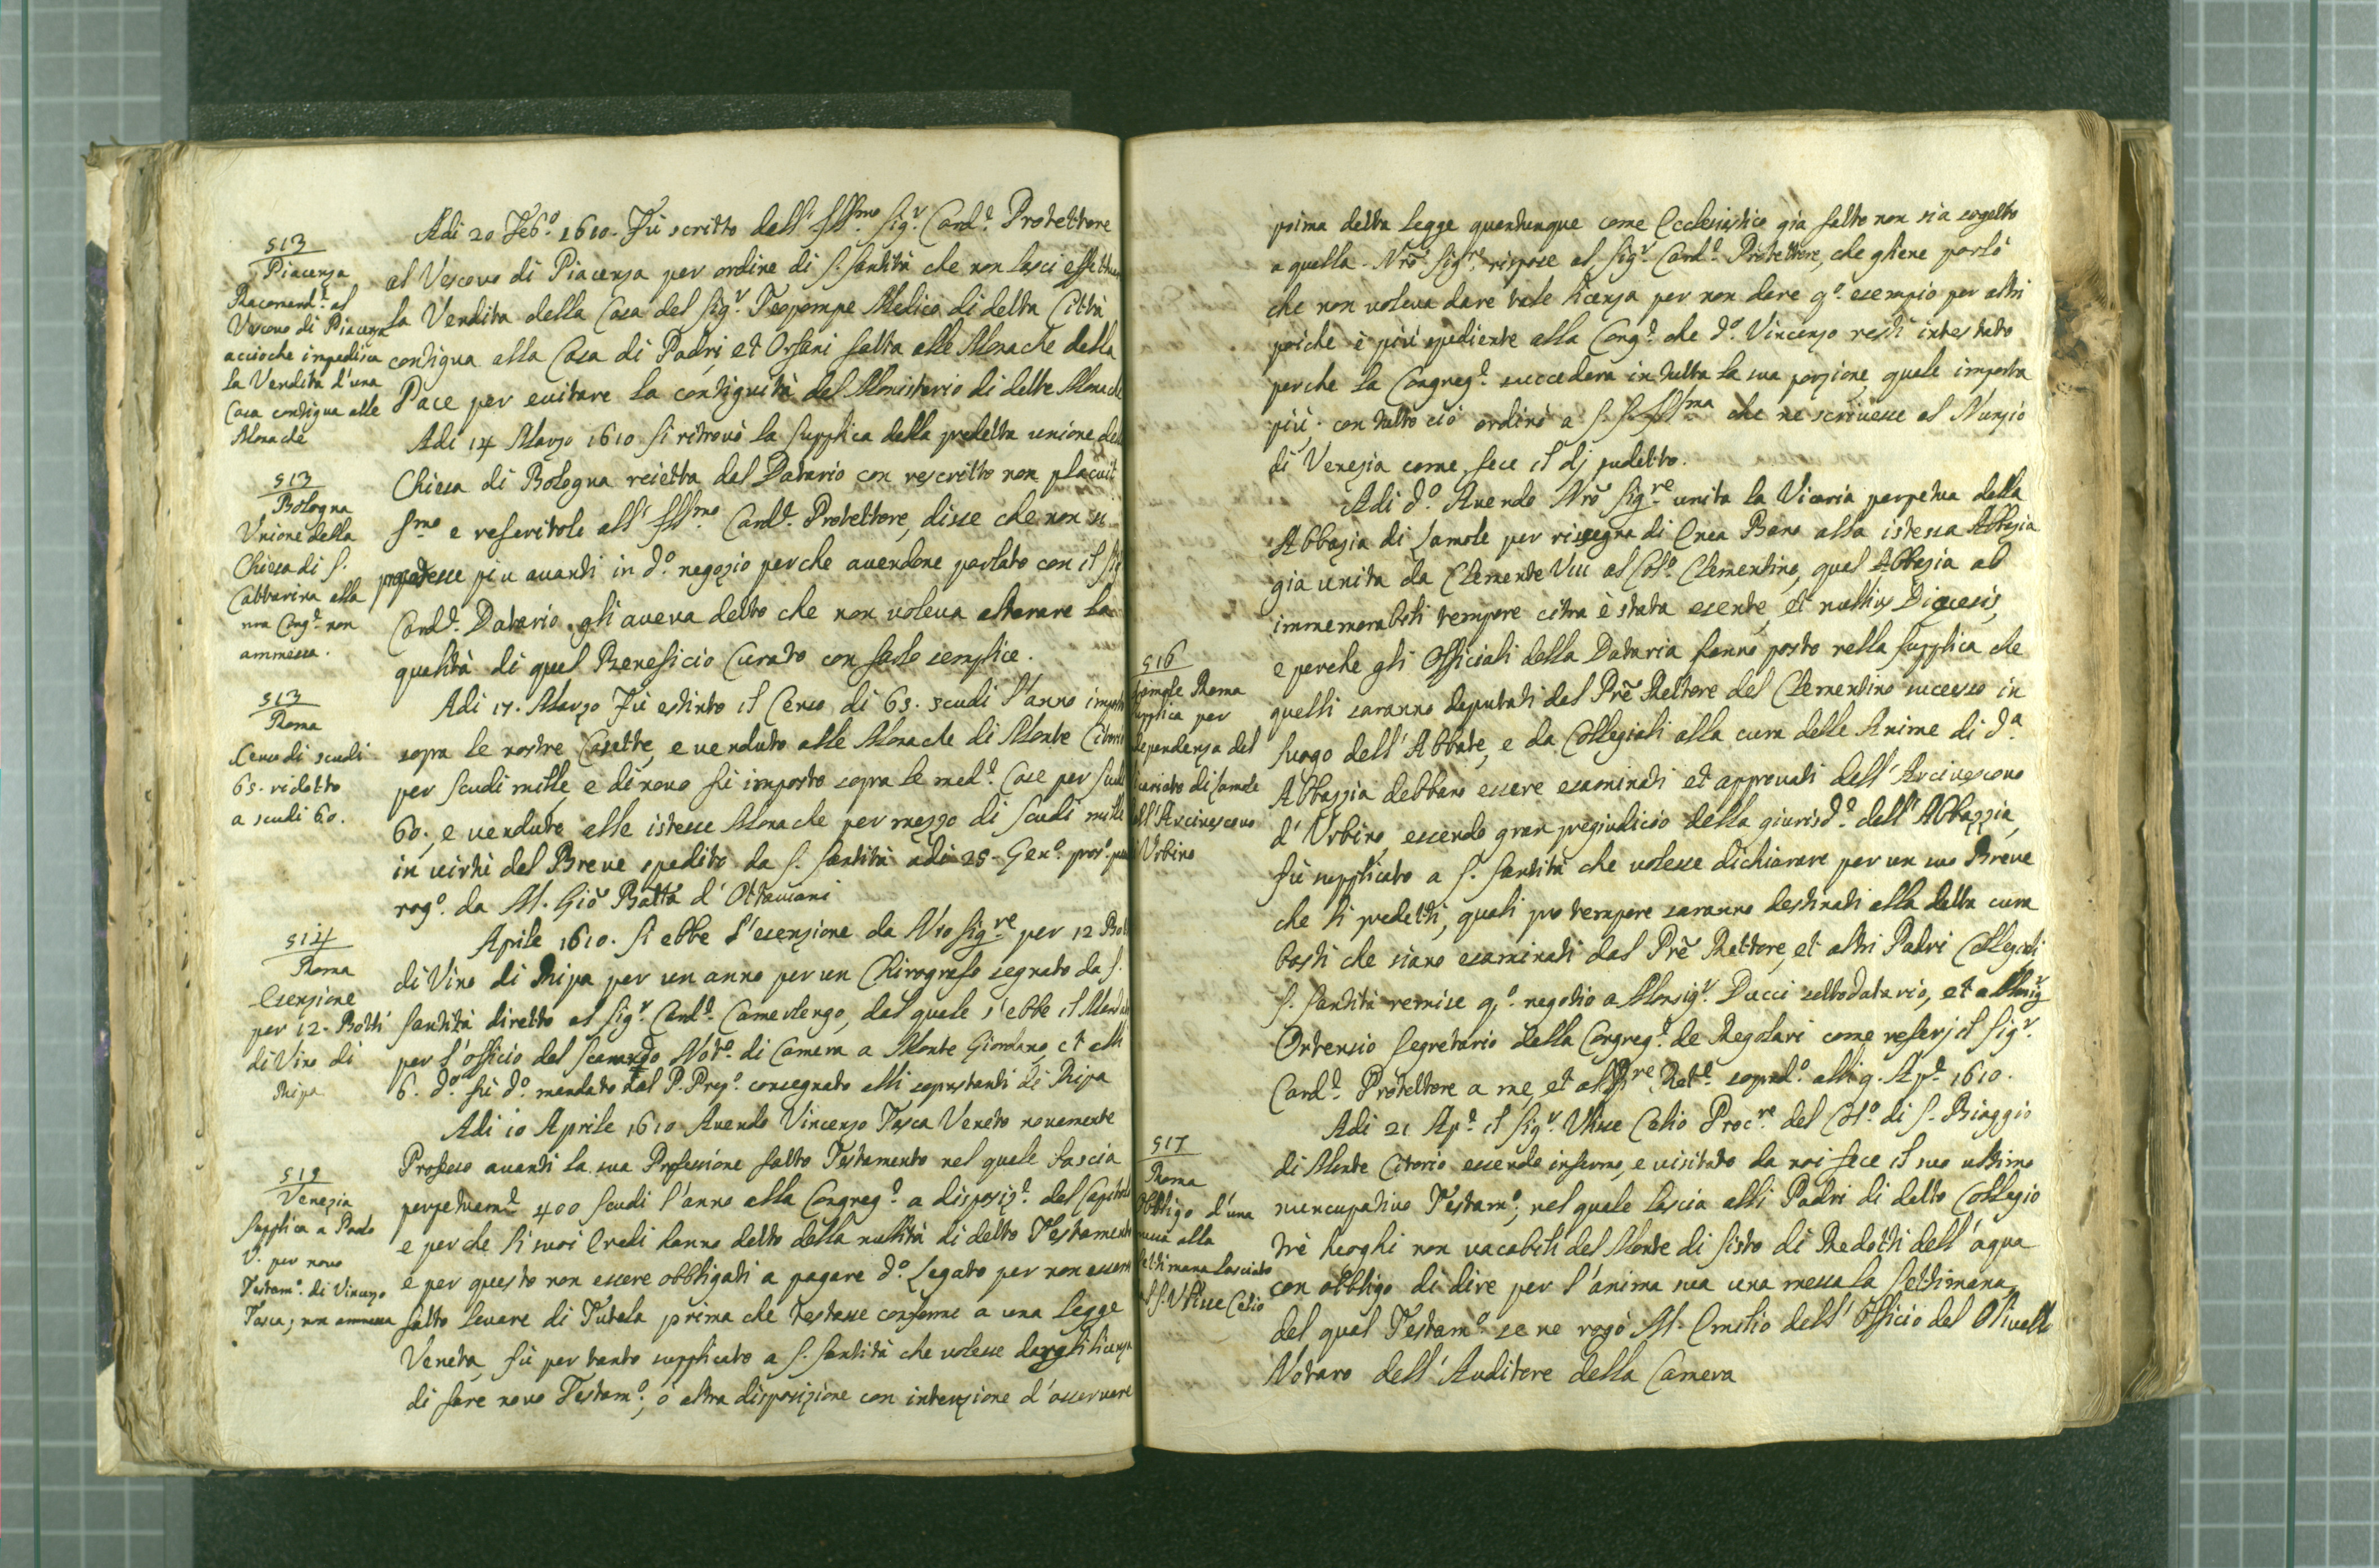 513
Piacenza
Racomand.e al
Vescovo di Piacenza
accioche impedisca
la Vendita d'una
Casa contigua alle
Monache
Adi 20 Feb.o 1610. Fù scritto dall' Ill.mo Sig.r Card.e Protettore
al Vescovo di Piacenza per ordine di S. Santità che non lasci
la Vendita della Casa del Sig.r Teopompe Medico di detta Città
contigua alla Casa di Padri et Orfani fatta alle Monache della
Pace per evitare la contiguità del Monisterio di dette
513
Bologna
Unione della
Chiesa di S.
Cattarina alla
nra Cong.e non
ammessa.
Adi 14 Marzo 1610 si ritrovò la supplica della predetta unione
Chiesa di Bologna reietta dal Datario con rescritto non placuit
S.mo e referitolo all' Ill.mo Card.e Protettore, disse che non si
più avanti in d.o negozio perche avendone parlato con il
Card.e Datario gli aveva detto che non voleva alterare la
qualità di quel Beneficio Curato con farlo semplice.
513
Roma
Censo di scudi
65. ridotto
a scudi 60.
Adi 17. Marzo Fù estinto il Censo di 65. scudi l'anno
sopra le nostre Casette, e venduto alle Monache di Monte
per scudi mille, e di novo fù imposto sopra le med.e Case per
60., e vendute alle istesse Monache per mezzo di scudi
in virtù del Breve spedito da S. Santità adi 25. Gen.o
rog.o da M. Giõ Batta d'Ottaviani
514
Roma
Esenzione
per 12. Botti
di Vino di
Ripa
Aprile 1610. Si ebbe l'esenzione da Nro Sig.re per 12
di Vino di Ripa per un anno per un Chirografo segnato da S.
Santità diretto al Sig.r Card.e Camerlengo, dal quale s'ebbe il
per l'officio del Not.o di Camera a Monte Giordano, et alli
6. d.o fù d.o mandato dal P. Prep.o consegnato alli soprastanti di Ripa
515
Venezia
Supplica a Paolo
V. per novo
Testam.o di Vincenzo
Tasca, non ammessa
Adi 10 Aprile 1610 Avendo Vincenzo Tasca Veneto novamente
Professo avanti la sua Professione fatto Testamento nel quale lascia
perpetuam.e 400 scudi l'anno alla Congreg.e a disposiz.e del
e perche li suoi Eredi hanno detto della nullità di detto Testamento
e per questo non essere obbligati a pagare d.o Legato per non
fatto levare di Tutela prima che testasse conforme a una Legge
Veneta, fù per tanto supplicato a S. Santità che volesse
di fare novo Testam.o, ò altra disposizione con intenzione d'osservare
prima detta Legge quantunque come Ecclesiastico già fatto non sia sogetto
a quella. Nro Sig.re rispose al Sig.r Card.e Protettore, che gliene parlò
che non voleva dare tale licenza per non dare q.o esempio per altri
poiche è più spediente alla Cong.e che d.o Vincenzo resti intestato
perche la Congreg.e succederà in tutta la sua porzione, quale importa
più. con tutto ciò ordinò a S. S. Ill.ma che ne scrivesse al Nunzio
di Venezia come fece il dj sudetto.
516
Roma
per
dependenza del
di Lamole
all'Arcivescovo
Urbino
Adi d.o Avendo Nrõ Sig.re unita la Vicaria perpetua della
Abbazia di Lamole per rissegna di Enea Bano alla istessa Abbazia
già unita da Clemente VIII al Col.o Clementino, qual Abbazia ab
immemorabili tempore citra è stata esente, et nullius Diocesis,
e perche gli Officiali della Dataria hanno posto nella supplica che
quelli saranno deputati dal Prẽ Rettore del Clementino successo in
luogo dell'Abbate, e da Collegiali alla cura delle Anime di d.a
Abbazzia debbano essere esaminati et approvati dall'Arcivescovo
d'Urbino, essendo gran pregiudicio della giurisd.e dell'Abbazzia,
fù supplicato a S. Santità che volesse dichiarare per un suo Breve
che li predetti, quali pro tempore saranno destinati alla detta cura
basti che siano esaminati dal Prẽ Rettore, et altri Padri Collegiali
S. Santità remise q.o negotio a Monsig.r Ducci sottodatario, et a Monsig.r
Ortensio Segretario della Congreg.e de Regolari come referj il Sig.r
Card.e Protettore a me, et al Pre Ret.e soprad.o alli 9. Ap.e 1610.
517
Roma
Obbligo d'una
messa alla
settimana lasciato
Ulisse Celio
Adi 21 Ap.e il Sig.r Ulisse Celio Proc.re del Col.o di S. Biaggio
di Monte Citorio essendo infermo, e visitato da noi fece il suo ultimo
nuncupativo Testam.o, nel quale lascia alli Padri di detto Collegio
trè luoghi non vacabili del Monte di Sisto di Redotti dell'aqua
con obbligo di dire per l'anima sua una messa la settimana,
del qual Testam.o se ne rogò M. Emilio dell'Officio del Olivelli
Notaro dell'Auditore della Camera